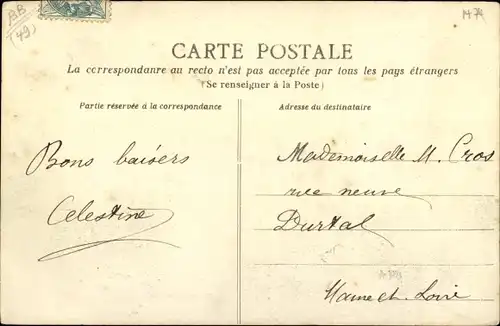 BB
(49)
1474
CARTE POSTALE
La correspondanre au recto n'est pas acceptée par tous les pays étrangers
(Se renseigner à la Poste)
Partie réservée à la correspondance
Adresse du destinataire
Bons baisers
Celestine
Mademoiselle M. Cros
rue neuve
Durtal
Maine et Loire